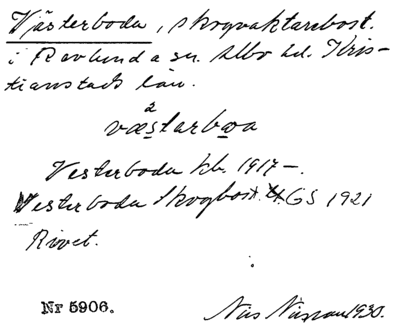 Västerboda, skogvaktarebost.
i Ravlunda sn. Albo hd. Kris-
tianstads län.
2
væstarbωa
Vesterboda kb. 1917–.
Vesterboda Skogbost. GS 1921
Rivet.
Nr 5906.
Nils 1930.